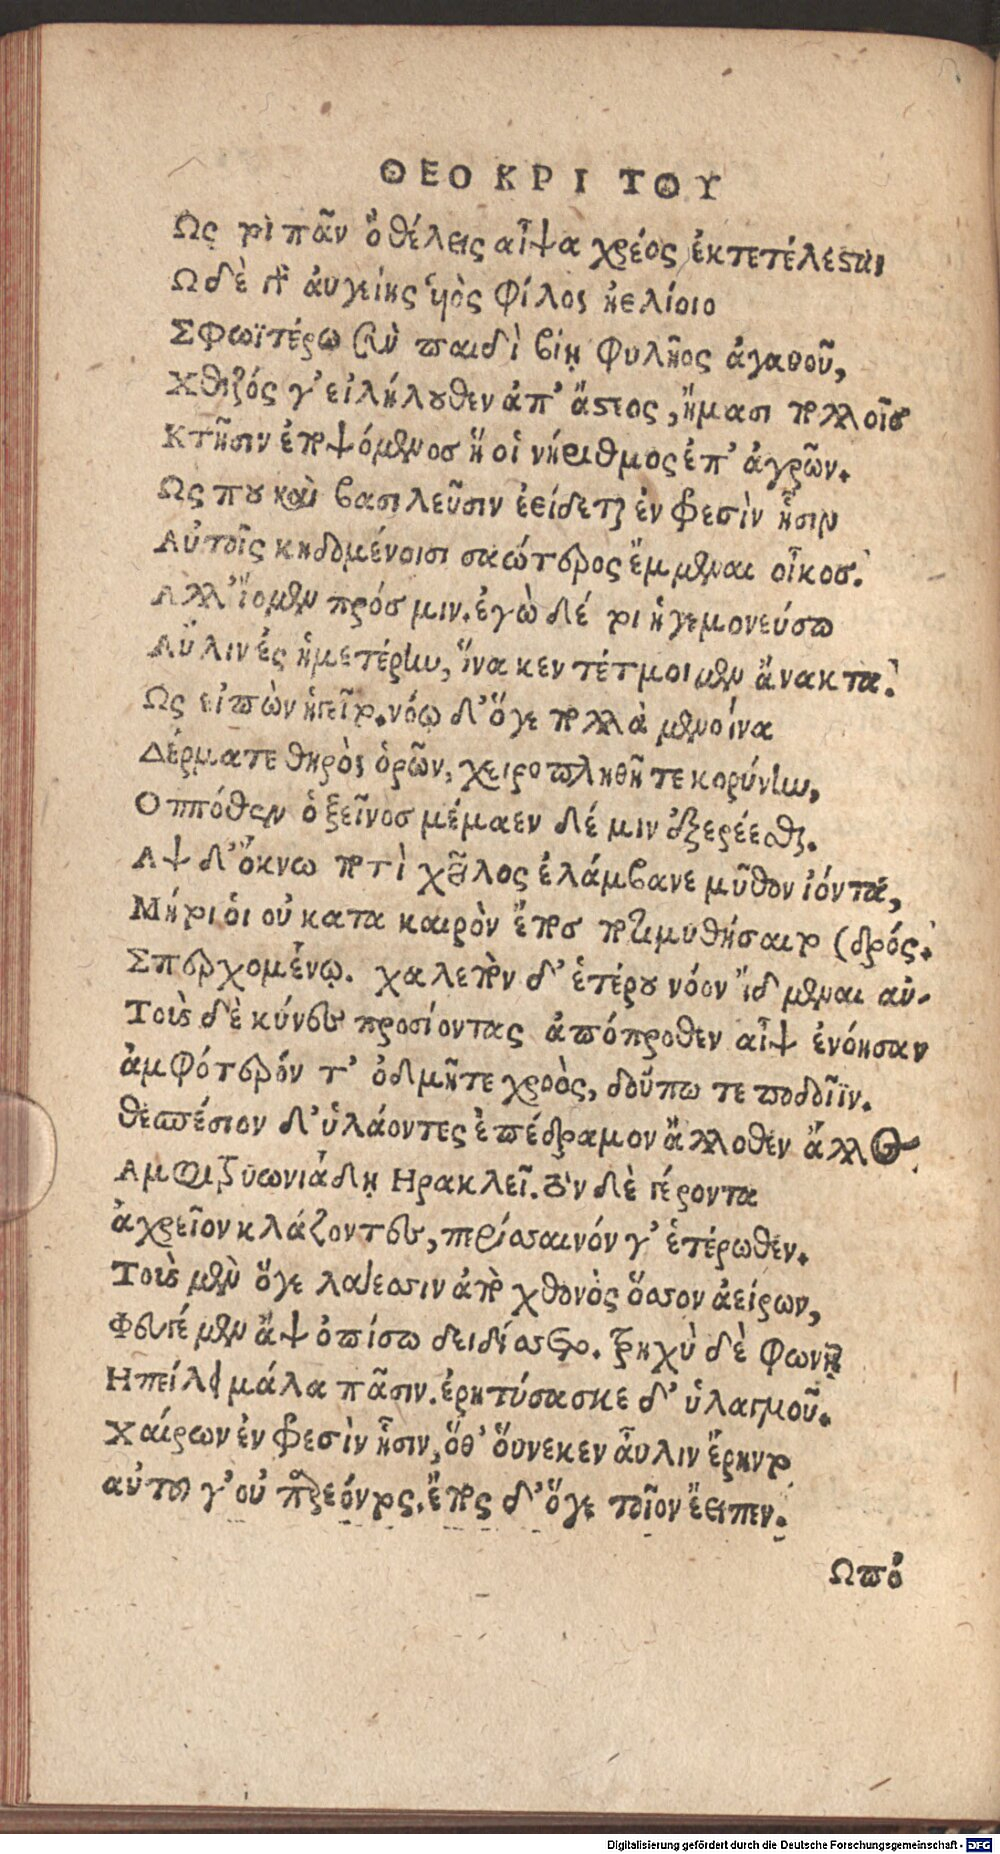 ΘΕΟΚΡΙΤΟΥ
Ως τοι πᾶν ὃ θέλεις αἶψα χρέος ἐκτετέλεσται
Ωδὲ γὰρ ἀυγείης υἱὸς φίλος ἠελίοιο
Σφωϊτέρω σὺν παιδὶ βίῃ φυλῆος ἀγαθοῦ,
Χθιζός γ' εἰλήλουθεν ἀπ' ἄστεος, ἤμασι πολλοῖς
Κτῆσιν ἐποψόμενος ἥ οἱ νήριθμος ἐπ' ἀγρῶν.
Ως που καὶ βασιλεῦσιν ἐείδεται ἐν φρεσὶν ᾗσιν
Αὐτοῖς κηδομένοισι σαώτερος ἔμμεναι οἶκος.
Αλλ' ἴομεν πρός μιν. ἐγὼ δέ τοι ἡγεμονεύσω
Αὖλιν ἐς ἡμετέρην, ἵνα κεν τέτμοιμεν ἄνακτα.
Ως εἰπὼν ἡγεῖτο. νόῳ δ' ὅγε πολλὰ μενοίνα
Δέρματε θηρὸς ὁρῶν, χειροπληθῆ τε κορύνην,
Οππόθεν ὁ ξεῖνος μέμαεν δέ μιν ἐξερέεσθαι.
Αψ δ' ὄκνω ποτὶ χεῖλος ἐλάμβανε μῦθον ἰόντα,
Μή τοι οἱ οὐ κατα καιρὸν ἔπος ποτιμυθήσαιτο (δρός.
Σπερχομένῳ. χαλεπὸν δ' ἑτέρου νόον ἴδμεναι αν-
Τοὺς δὲ κύνες προσίοντας ἀπόπροθεν αἶψ ἐνόησαν
ἀμφότερόν τ' ὀδμῆτε χροὸς, δούπω τε ποδοῖϊν.
θεσπέσιον δ' ὑλάοντες ἐπέδραμον ἄλλοθεν ἄλλος
Αμφιτρυωνιάδῃ Ηρακλεῖ. τὸν δὲ γέροντα
ἀχρεῖον κλάζοντες, περίσσαινόν γ' ἑτέρωθεν.
Τοὺς μὲν ὅγε λάεσσιν ἀπὸ χθονὸς ὅσσον ἀείρων,
Φευγέμεν ἂψ ὀπίσω δειδίσσετο. τρηχὺ δὲ φωνῇ
Ηπείλει μάλα πᾶσιν. ἐρητύσασκε δ' ὑλαγμοῦ.
Χαίρων ἐν φρεσὶν ᾗσιν, ὅθ' οὕνεκεν αὖλιν ἔρηντο
αὐτοῦ γ' οὐ παρεόντος. ἔπος δ' ὅγε τοῖον ἔειπεν.
Ωπό
Digitalisierung gefördert durch die Deutsche Forschungsgemeinschaft - DFG